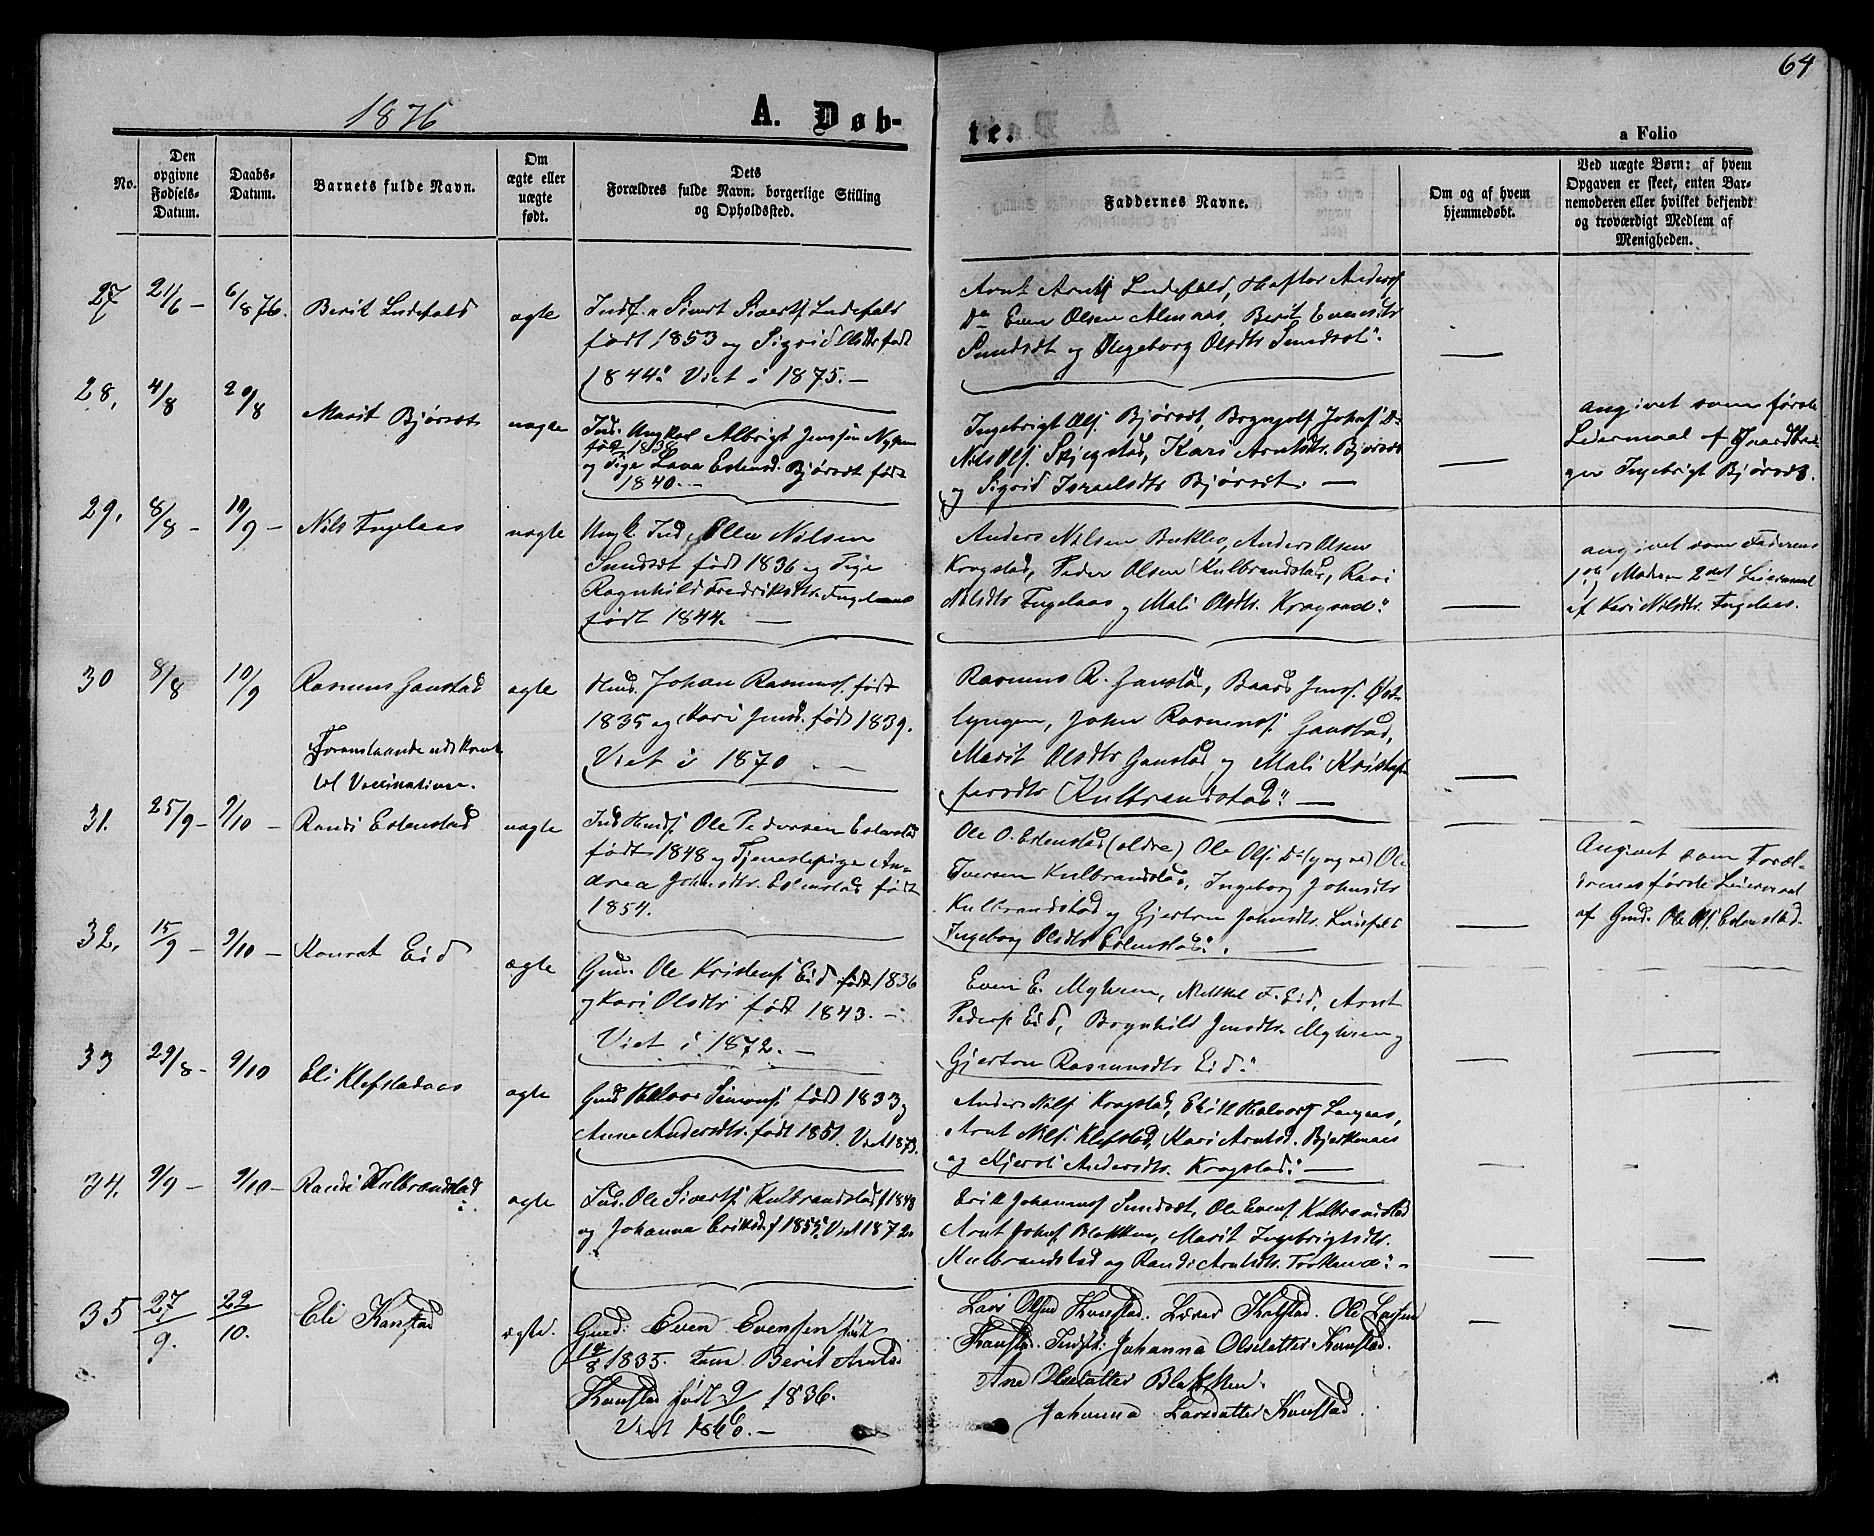 64
1876
A. Døb-
te.
a Folio
No.
Den
opgivne
Fødsels-
Datum.
Daabs-
Datum.
Barnets fulde Navn.
Om
ægte eller
uægte
født.
Dets
Forældres fulde Navn, borgerlige Stilling
og Opholdsted.
Faddernes Navne.
Om og af hvem
hjemmedøbt.
Ved uægte Børn: af hvem
Opgaven er skeet, enten Bar-
nemoderen eller hvilket bekjendt
og troværdigt Medlem af
Menigheden.
27 21/6 – 6/8 76. Berit Endefald ægte
Sivert Sivertsf Endefald
født 1853 og Sigrid Olsdtr født
1844. Viet i 1875. –
Arnt Arntsf Endefald, Haftor Andersf
Do Even Olsen Almaas, Berit Evensdtr
Sundset og Ingeborg Olsdtr Sundset.
28. 4/8 20/8 Marit Bjørset uægte
Ind. Ungkarl Albrigt Jenssen Myhren
født 1838
og Pige Lava Estensd. Bjørset født
1840. –
Ingebrigt Olsf. Bjørset, Brynjolf Johnsf Do
Nils Olsf. Skjegstad, Kari Arntsdtr. Bjørset
og Sigrid Israelsdtr Bjørset. –
angivet som første
Leiermaal af Gaardbru-
ger Ingebrigt Bjørset.
29. 8/8 – 10/9 – Nils Engelaas uægte
Ungk. Ind. Ole Nilsen
Sundset født 1836 og Pige
Ragnhild Fredriksdtr. Engelaas
født 1844. –
Anders Nilsen Buklev, Anders Olsen
Kragstad, Peder Olsen Kulbrandstad, Kari
Nilsdtr Engelaas og Mali Olsdtr. Kragstad.
angivet som Faderens
1ste og Moderen 2det Leiermaal
af Kari Nilsdtr. Engelaas.
30 8/8 10/9 Rasmus Ganstad ægte
Foranstaaende udskrevet
til Vaccinationen.
Huus. Johan Rasmusf. født
1835 og Kari Jensd. født 1839.
Viet i 1870 –
Rasmus R. Ganstad, Baard Jensf. Øst-
lyngen, John Rasmussf. Ganstad,
Marit Olsdtr Ganstad og Mali Kristof-
fersdtr Kulbrandstad. –
31. 25/9 – 9/10 – Randi Estenstad uægte
Ind. Ole Pedersen Estenstad
født 1848 og Tjenestepige An-
drea Johnsdtr. Estenstad født
1854.
Ole O. Estenstad (ældre) Ole Olsf. Do (yngre) Ole
Iversen Kulbrandstad, Ingeborg Johnsdtr
Kulbrandstad og Gjertru Johnsdtr.
Ingeborg Olsdtr Estenstad.
Angivet som Foræl-
drenes første Leiermaal
af Gmd. Ole Olsf. Estenstad.
32. 15/9 – 9/10 – Konrat Eid ægte
Gmd. Ole Kristensf Eid født 1836
og Kari Olsdtr født 1843. –
Viet i 1872. –
Even E. Myhren, Mikkel F. Eid, Arnt
Pedersf Eid, Brynhild Jensdtr. Myhren og
Gjertru Rasmusdtr Eid.
33 29/8 – 9/10 Eli Klefstadaas ægte
Gmd. Halvor Simonsf født 1833 og
Anne Andersdtr. født 1851. Viet 1873.
Anders Nilsf Kragstad, Erik Halvorsf Langaas,
Arnt Nilsf. Klefstad, Kari Arntsd. Bjerkenaas
og Kjersti Andersdtr. Kragstad. –
34. 9/9 – 9/10 – Randi Kulbrandstad ægte
Ind. Ole Sivertsf Kulbrandstad f 1848
og Johanna Eriksd. f 1855. Viet 1872.
Erik Johannesf Sundset, Ole Evensf Kulbrandstad
Arnt Johnsf Blekken, Marit Ingebrigtsdtr.
Kulbrandstad og Randi Arntsdtr.
35 27/9. 22/10. Eli Kanstad ægte.
Gmd. Even Evensen født
19/8 1835. Kone Berit Arntsd
Kanstad født 9/ 1836.
Viet 1866. –
Lars Olsen Kanstad. Kanstad. Ole Larsen
Kanstad. Indst: Johanna Olsdatter Kanstad.
Ane Olsdatter Blekken.
Johanna Larsdatter Kanstad.